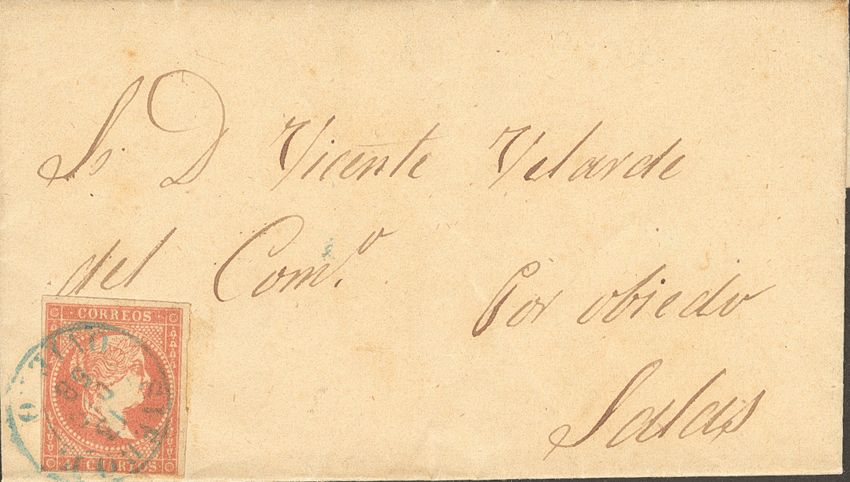 Sr. D Vicente Velarde
del Com.º
Por obiedo
Salas
CORREOS
4 Cs CORREOS